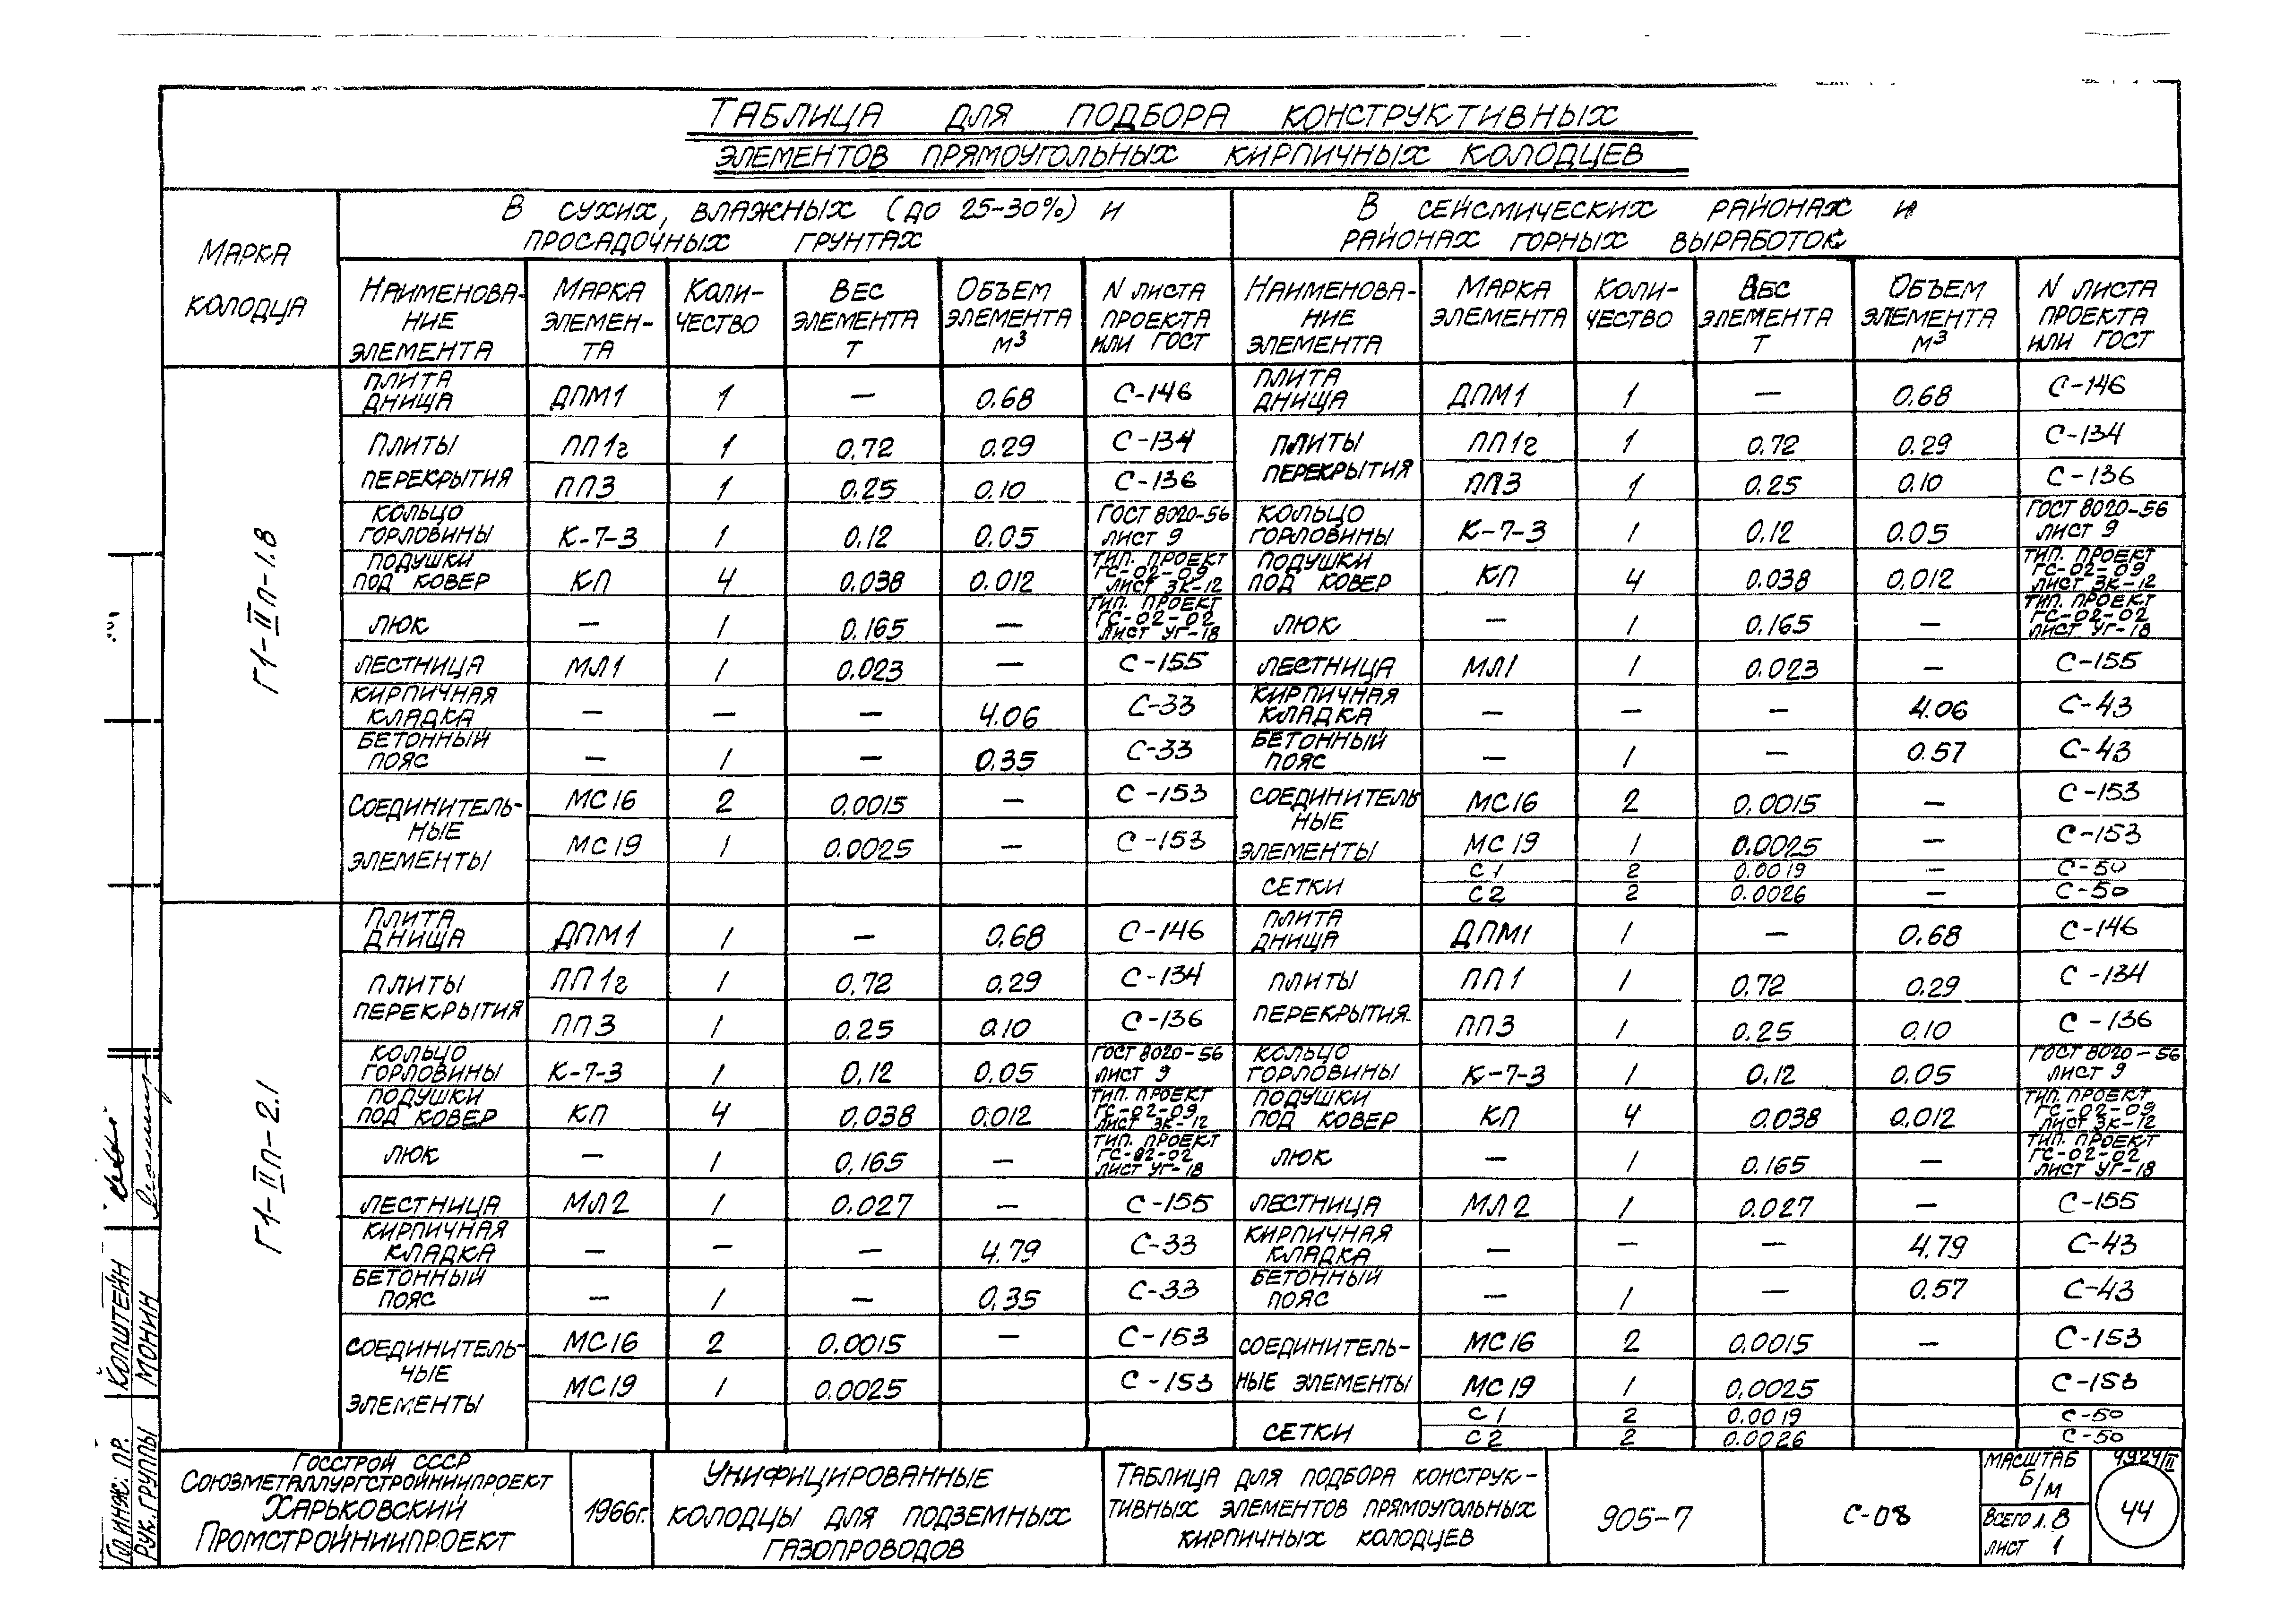 ТАБЛИЦА ДЛЯ ПОДБОРА КОНСТРУКТИВНЫХ
ЭЛЕМЕНТОВ ПРЯМОУГОЛЬНЫХ КИРПИЧНЫХ КОЛОДЦЕВ
МАРКА КОЛОДЦА
В СУХИХ, ВЛАЖНЫХ (ДО 25-30%) И ПРОСАДОЧНЫХ ГРУНТАХ
В СЕЙСМИЧЕСКИХ РАЙОНАХ И РАЙОНАХ ГОРНЫХ ВЫРАБОТОК
НАИМЕНОВА-НИЕ ЭЛЕМЕНТА МАРКА ЭЛЕМЕН-ТА КОЛИ-ЧЕСТВО ВЕС ЭЛЕМЕНТА Т ОБЪЕМ ЭЛЕМЕНТА М³ N ЛИСТА ПРОЕКТА ИЛИ ГОСТ НАИМЕНОВА-НИЕ ЭЛЕМЕНТА МАРКА ЭЛЕМЕНТА КОЛИ-ЧЕСТВО ВЕС ЭЛЕМЕНТА Т ОБЪЕМ ЭЛЕМЕНТА М³ N ЛИСТА ПРОЕКТА ИЛИ ГОСТ
Г1-IIп-1.8
ПЛИТА ДНИЩА ДПМ1 1 — 0.68 С-146 ПЛИТА ДНИЩА ДПМ1 1 — 0.68 С-146
ПЛИТЫ ПЕРЕКРЫТИЯ ПП1г 1 0.72 0.29 С-134 ПЛИТЫ ПЕРЕКРЫТИЯ ПП1г 1 0.72 0.29 С-134
ПП3 1 0.25 0.10 С-136 ПП3 1 0.25 0.10 С-136
КОЛЬЦО ГОРЛОВИНЫ К-7-3 1 0.12 0.05 ГОСТ 8020-56 ЛИСТ 9 КОЛЬЦО ГОРЛОВИНЫ К-7-3 1 0.12 0.05 ГОСТ 8020-56 ЛИСТ 9
ПОДУШКИ ПОД КОВЕР КП 4 0.038 0.012 ТИП. ПРОЕКТ ГС-02-09 ЛИСТ ЗК-12 ПОДУШКИ ПОД КОВЕР КП 4 0.038 0.012 ТИП. ПРОЕКТ ГС-02-09 ЛИСТ ЗК-12
ЛЮК — 1 0.165 — ТИП. ПРОЕКТ ГС-02-02 ЛИСТ УГ-18 ЛЮК — 1 0.165 — ТИП. ПРОЕКТ ГС-02-02 ЛИСТ УГ-18
ЛЕСТНИЦА МЛ1 1 0.023 — С-155 ЛЕСТНИЦА МЛ1 1 0.023 — С-155
КИРПИЧНАЯ КЛАДКА — — — 4.06 С-33 КИРПИЧНАЯ КЛАДКА — — — 4.06 С-43
БЕТОННЫЙ ПОЯС — 1 — 0.35 С-33 БЕТОННЫЙ ПОЯС — 1 — 0.57 С-43
СОЕДИНИТЕЛЬ-НЫЕ ЭЛЕМЕНТЫ МС16 2 0.0015 — С-153 СОЕДИНИТЕЛЬ НЫЕ ЭЛЕМЕНТЫ МС16 2 0.0015 — С-153
МС19 1 0.0025 — С-153 МС19 1 0.0025 — С-153
СЕТКИ С1 2 0.0019 — С-50
С2 2 0.0026 — С-50
Г1-IIп-2.1
ПЛИТА ДНИЩА ДПМ1 1 — 0.68 С-146 ПЛИТА ДНИЩА ДПМ1 1 — 0.68 С-146
ПЛИТЫ ПЕРЕКРЫТИЯ ПП1г 1 0.72 0.29 С-134 ПЛИТЫ ПЕРЕКРЫТИЯ ПП1 1 0.72 0.29 С-134
ПП3 1 0.25 0.10 С-136 ПП3 1 0.25 0.10 С-136
КОЛЬЦО ГОРЛОВИНЫ К-7-3 1 0.12 0.05 ГОСТ 8020-56 ЛИСТ 9 КОЛЬЦО ГОРЛОВИНЫ К-7-3 1 0.12 0.05 ГОСТ 8020-56 ЛИСТ 9
ПОДУШКИ ПОД КОВЕР КП 4 0.038 0.012 ТИП. ПРОЕКТ ГС-02-09 ЛИСТ ЗК-12 ПОДУШКИ ПОД КОВЕР КП 4 0.038 0.012 ТИП. ПРОЕКТ ГС-02-09 ЛИСТ ЗК-12
ЛЮК — 1 0.165 — ТИП. ПРОЕКТ ГС-02-02 ЛИСТ УГ-18 ЛЮК — 1 0.165 — ТИП. ПРОЕКТ ГС-02-02 ЛИСТ УГ-18
ЛЕСТНИЦА МЛ2 1 0.027 — С-155 ЛЕСТНИЦА МЛ2 1 0.027 — С-155
КИРПИЧНАЯ КЛАДКА — — — 4.79 С-33 КИРПИЧНАЯ КЛАДКА — — — 4.79 С-43
БЕТОННЫЙ ПОЯС — 1 — 0.35 С-33 БЕТОННЫЙ ПОЯС — 1 — 0.57 С-43
СОЕДИНИТЕЛЬ-ЧЫЕ ЭЛЕМЕНТЫ МС16 2 0.0015 — С-153 СОЕДИНИТЕЛЬ-НЫЕ ЭЛЕМЕНТЫ МС16 2 0.0015 — С-153
МС19 1 0.0025 С-153 МС19 1 0.0025 С-153
СЕТКИ С1 2 0.0019 С-50
С2 2 0.0026 С-50
ГЛ.ИНЖ. ПР. КОПШТЕЙН
РУК. ГРУППЫ МОНИН
ГОССТРОЙ СССР
СОЮЗМЕТАЛЛУРГСТРОЙНИИПРОЕКТ
ХАРЬКОВСКИЙ
ПРОМСТРОЙНИИПРОЕКТ
1966г.
УНИФИЦИРОВАННЫЕ
КОЛОДЦЫ ДЛЯ ПОДЗЕМНЫХ
ГАЗОПРОВОДОВ
ТАБЛИЦА ДЛЯ ПОДБОРА КОНСТРУК-
ТИВНЫХ ЭЛЕМЕНТОВ ПРЯМОУГОЛЬНЫХ
КИРПИЧНЫХ КОЛОДЦЕВ
905-7
С-08
МАСШТАБ
Б/М
ВСЕГО Л. 8
ЛИСТ 1
4924/II
44